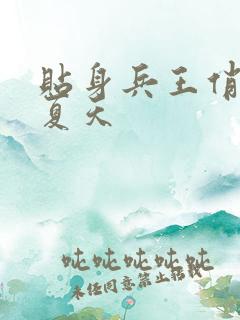 贴身兵王俏
夏天
吨吨吨吨吨
未经同意禁止转载